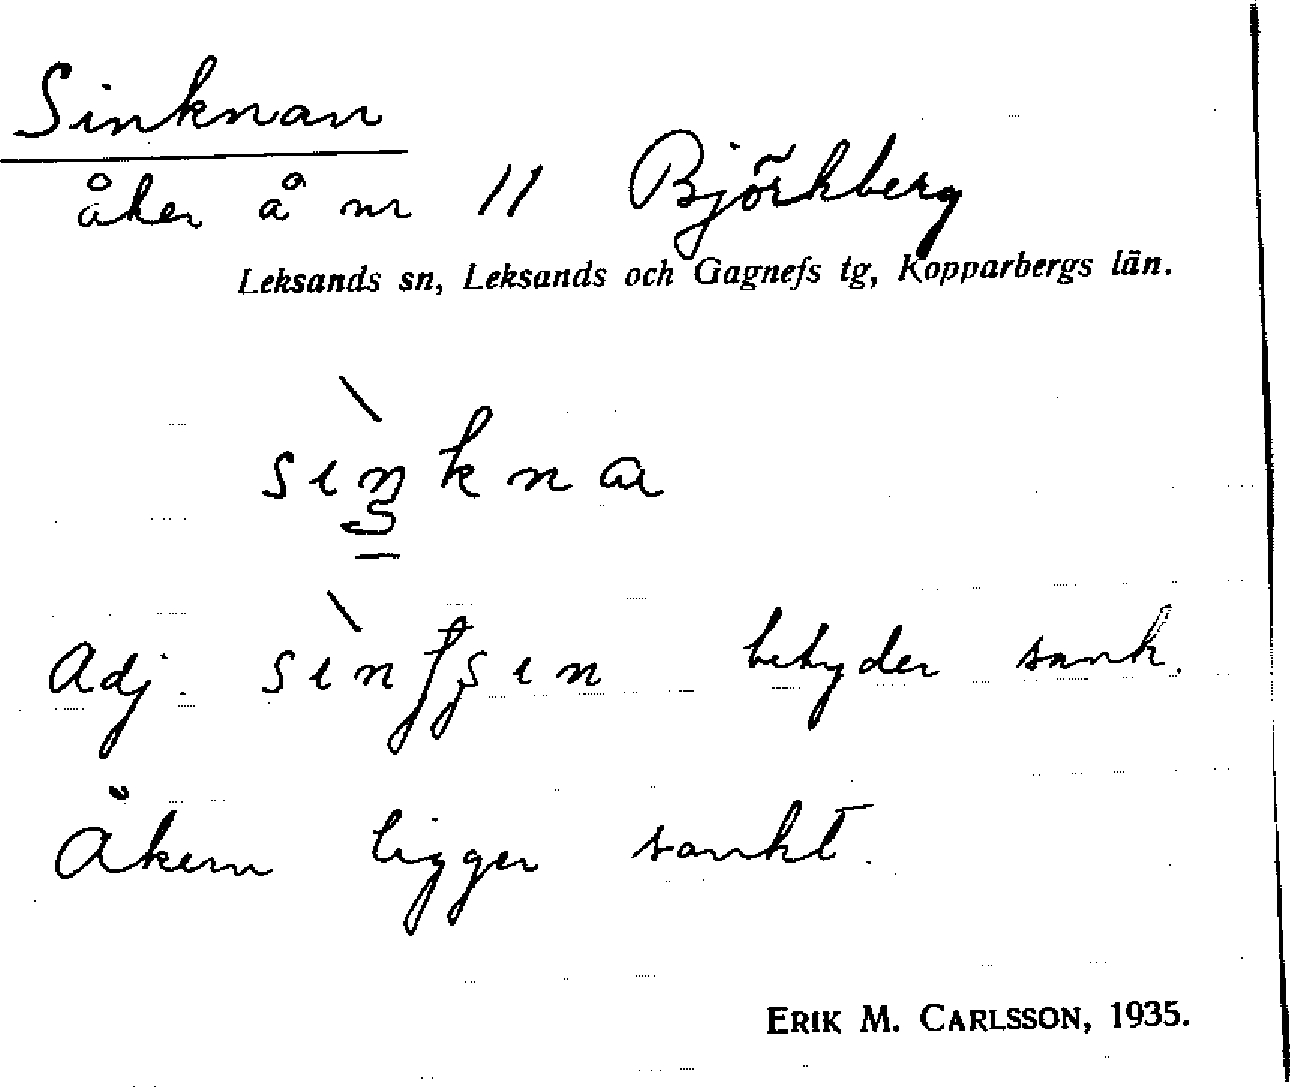 Sinknan
åker å nr 11 Björkberg
Leksands sn, Leksands och Gagnefs tg, Kopparbergs län.
sìŋkna
Adj. betyder sank.
Åkern ligger sankt.
ERIK M. CARLSSON, 1935.